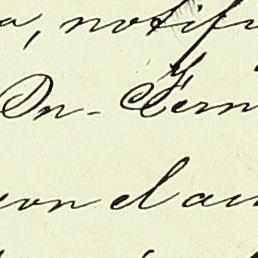 a, notifi
On- Fern
con el au